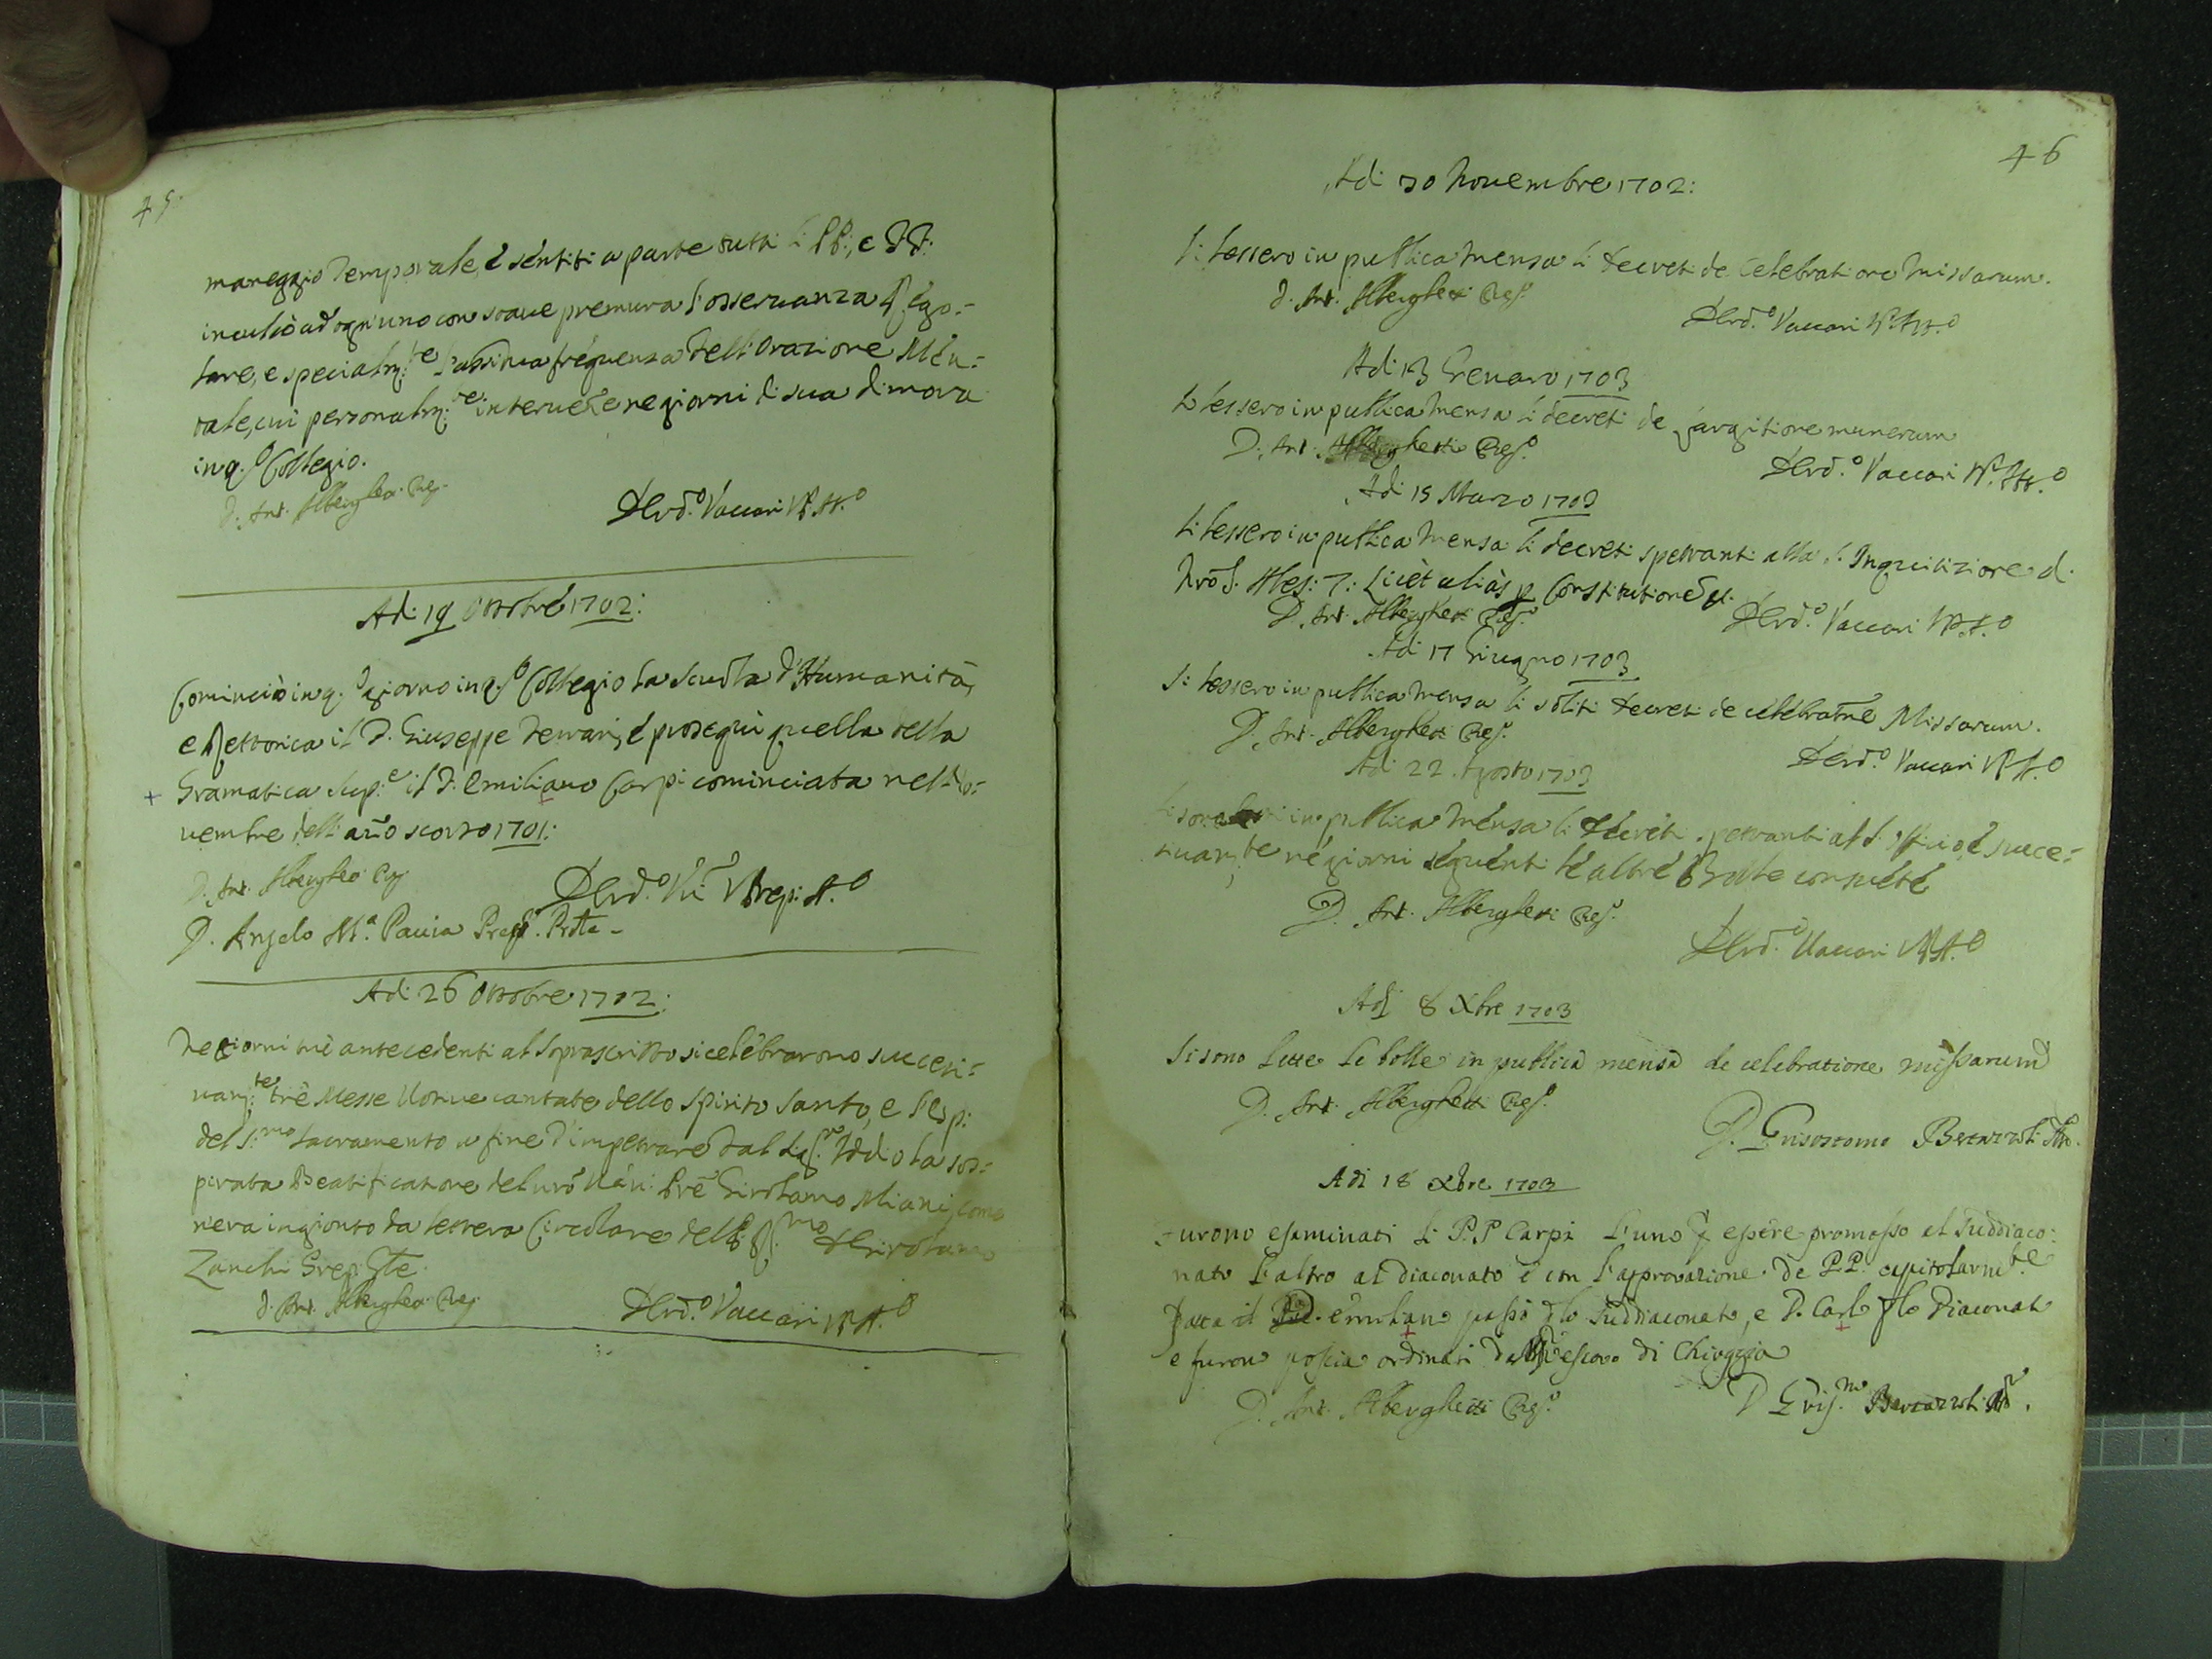 45.
maneggio temporale, e sentiti a parte tutti li PP:, e FF:
inculcò ad ogn'uno con soave premura l'osservanza Rego-
lare, e specialm:te l'assidua frequenza dell'Orazione Men-
tale, cui personalm:te intervene ne giorni di sua dimora
in q.o Collegio.
D: Ant. Alberghetti Ret.
Vaccari
Adi 19 Ottobre 1702:
Cominciò in q.o giorno in q.o Collegio la scuola d'Humanità,
e Rettorica il P. Giuseppe e proseguì quella della
+ Gramatica Sup.e il P. Emiliano Carpi cominciata nel No-
vembre dell'año scorso 1701:
D. Ant. Alberghetti
D. Angelo M.a Pavia
Adi 26 Ottobre 1702:
Ne giorni trè antecedenti al soprascritto si celebrarono successi-
vam:te trè Messe Votive cantate dello Spirito Santo, e l'esp:
del S:mo Sacramento a fine d'impetrare dal Iddio la sos-
pirata Beatificatione del nrō Girolamo Miani, come
n'era ingionto da lettera Circolare dell Girolamo
Zanchi
D. Ant. Alberghetti
Vaccari
46
Adi 30 Novembre 1702:
Si lessero in publica mensa li decreti de Celebratione Missarum.
D. Ant. Alberghetti
Vaccari
Adi 13 Genaro 1703
Si lessero in publica mensa li decreti de largitione munerum
D. Ant. Alberghetti
Vaccari
Adi 15 Marzo 1703
Si lessero in publica mensa li decreti spettanti alla S. Inquisizione d.
Ales: 7: Licèt aliàs Constitutione
D. Ant. Alberghetti
Vaccari
Adi 17 Giugno 1703
Si lessero in publica mensa li soliti decreti de celebratne Missarum.
D. Ant. Alberghetti
Vaccari
Adi 22 Agosto 1703
in publica mensa li decreti spettanti al S. Officio e succes-
sivam:te ne giorni seguenti le altre Bolle consuete
D. Ant. Alberghetti
Vaccari
Adi 8 Xbre 1703
Si sono lette le bolle in publica mensa de celebratione missarum
D. Ant. Alberghetti
D. Grisostomo Bertazzoli
Adi 18 Xbre 1703
Furono esaminati li P.P Carpi l'uno p essere promosso al suddiaco-
nato l'altro al diaconato e con l'approvazione de PP. capitolarmte
fatta il Emiliano passò p lo suddiaconato, e D. Carlo p lo diaconato
e furono poscia ordinati da Vescovo di Chioggia
D. Ant. Alberghetti
D Gris.mo Bertazzoli